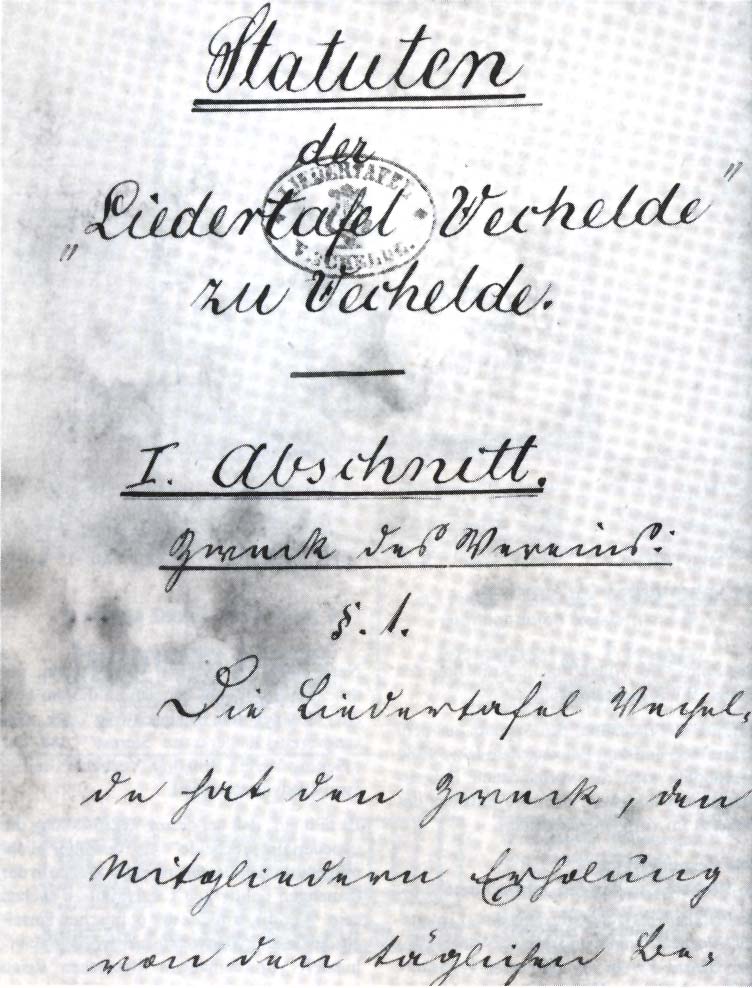 Statuten
der
„Liedertafel Vechelde"
zu Vechelde.
LIEDERTAFEL
VECHELDE.
I. Abschnitt.
Zweck des Vereins:
§. 1.
Die Liedertafel Vechel-
de hat den Zweck, den
Mitgliedern Erholung
von den täglichen Be-